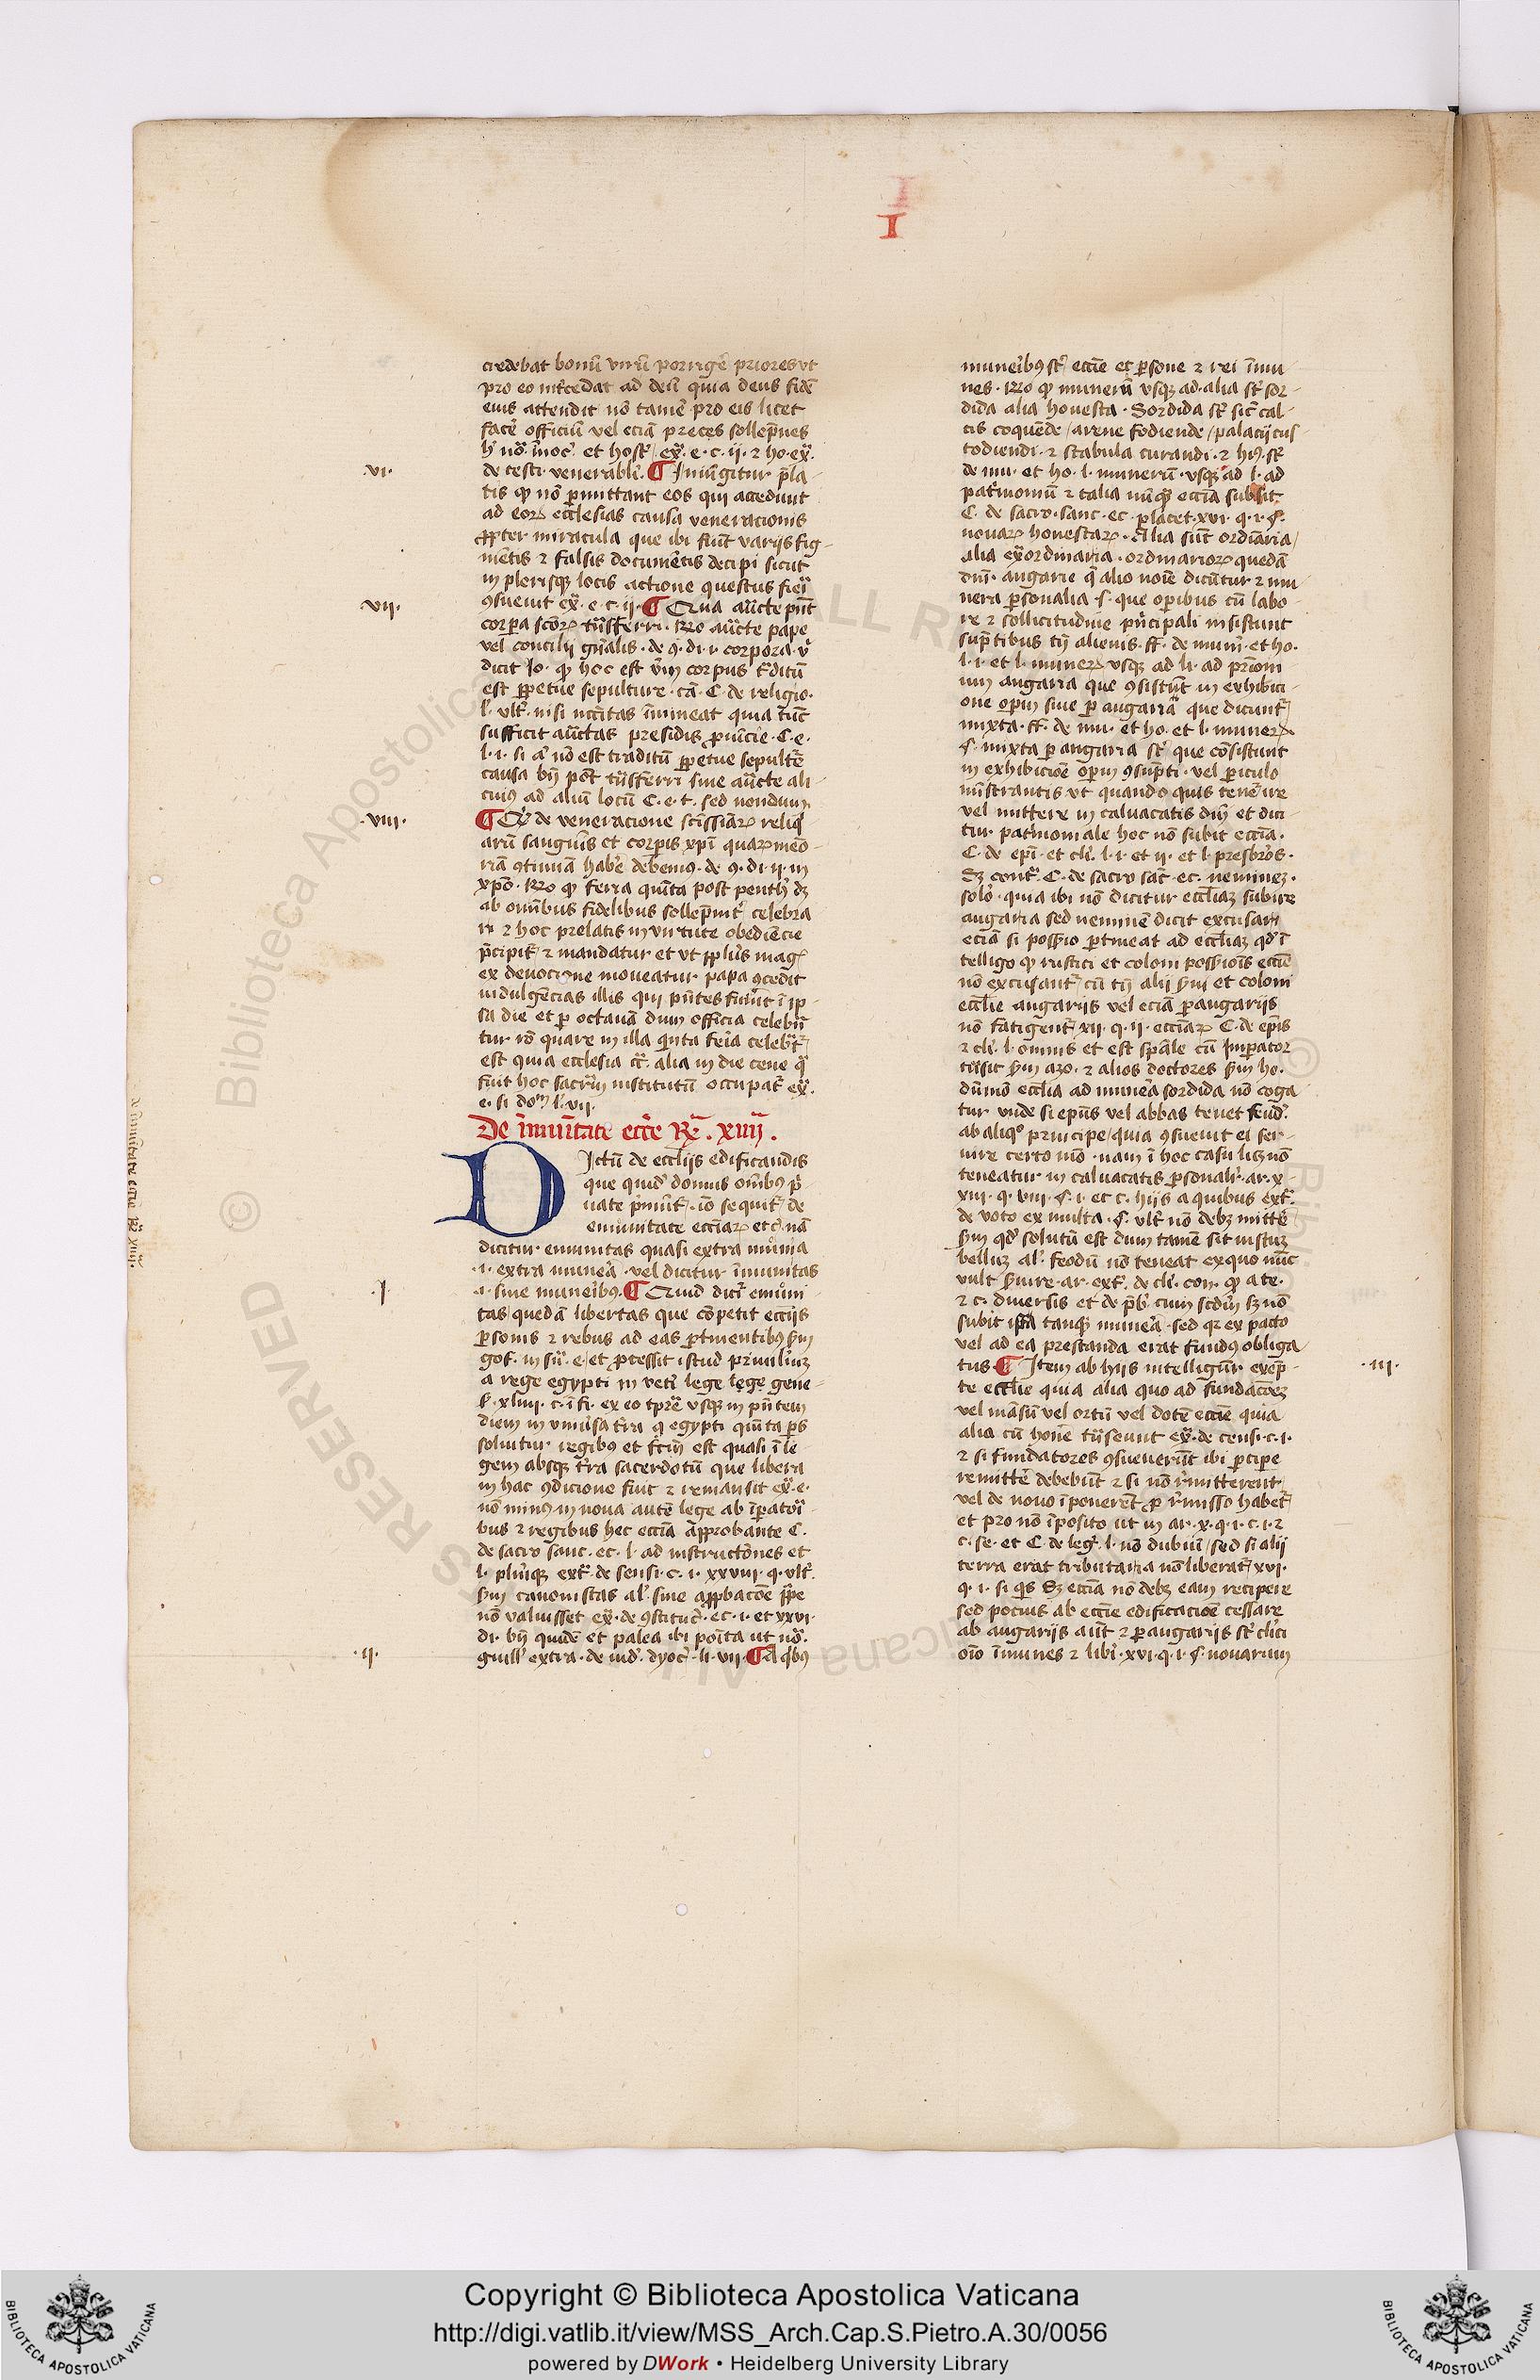 I
I
credebat bonū virū porrigē priores vt
pro eo int͛cedat ad deū quia deus fidē
eius attendit nō tamē pro eis licet
facē officiū vel eciā preces sollēpnes
de testi· venerabli· ¶ Iniūgitur p̄la-
tis qͥ nō ꝑmittant eos qui accedunt
ad eoꝝ ecclesias causa veneracionis
ꝓpter miracula que ibi fiūt varijs fig-
mētis ⁊ falsis documētis decipi sicut
in plerisqꝫ locis actione questus fieͥ
vi·
ꝯsueuit ex̄· e· c· ij· ¶ Qua aūcte p̄nt
vii·
corꝑa scōꝝ trāsferri· Rͦ aūcte pape
vel concilij gn̄alis· de ꝯ· di· i· corpora· v̄
dicit Jo· qͥ hoc est vbi corpus t͛ditū
est ꝑpetue sepulture· cā· C· de religio·
l· vlt͛· nisi nēcitas īmineat quia tūc
sufficit auctas presidis ꝓuīcie· C· e·
l· i· si aͥ nō est traditū ꝑpetue sepult͛e
causa bn̄ pōt trāsferri sine aūcte ali-
cuiꝰ ad aliū locū C· e· t· sed nondum·
viii·
¶ Qͥ de veneracione sc̄issiāꝝ reliq̄
arū sanguīs et corꝑis xp̄i quaꝝ meō-
riā ꝯtinuā habē debemꝰ· de ꝯ· di· ii· in
xp̄o· Rͦ qͥ ferra quīta post penth͛ dꝫ
ab omībus fidelibus sollēpnit͛ celebra
ri ⁊ hoc prelatis in virtute obediēcie
p̄cipit͛ ⁊ mandatur et vt ꝓplus mag͛
ex deuocione moueatur papa ꝯcedit
indulgēcias illis qui p̄ntes fuīnt ī ip-
sa die et ꝑ octauā dum officia celebn̄
tur rō quare in illa qͥnta feīa celebt͛
est quia ecclesia cͣ· alia in die cene qͣ
fuit hoc sacrm̄ institutū occupat͛ ex̄·
e· si dom̄ l· vii·
De īmūitate ecc̄e Rͣ· xiiij·
DIctū de eccl̄ijs edificandis
que quid͛ domus om̄ibꝰ pͥ
uate p̄minūt͛· iō sequit͛ de
emunitate ecciāꝝ etc̄· nā
dicitur emunitas quasi extra munia
·i· extra muneā· vel dicitur īmunitas
·i· sine muneibꝰ· ¶ Quid dicit͛ emuni-
·I·
tas quedā libertas que cōpetit ecc̄ijs
ꝑsonis ⁊ rebus ad eas ꝑtinentibꝰ ẜm
gof· in sū· e· et ꝓcessit istud priuil̄iuꝫ
a rege egypti in veti͛ lege lege gene-
diem in vniūsa t͛ra qͥ egypti quīta ꝑs
soluitur regibꝰ et f͛cm̄ est quasi ī le
gem absqꝫ t͛ra sacerdotū que libera
in hac ꝯdicione fuit ⁊ remansit ex̄· e·
nō minꝰ in noua autē lege ab īꝑatoͥ
bus ⁊ regibus hec ecciā ap̄probante C·
de sacro sanc· ec· l· ad instructōnes et
nō valuisset ex̄· de ꝯstitutͥ· ec· i· et xxvi·
di· bn̄ quidē et palea ibi poīta ut nō·
guill͛ extra· de iud͛· dyoc͛· li· vii· ¶ A qͥbꝰ
·ij·
muneibꝰ st͛ ecc̄ie et ꝑsone ⁊ rei īmu
nes· Rͦ qͥ munerū vsqꝫ ad· alia st͛ sor-
dida alia honesta· Sordida st͛ sic̄ cal-
cis coquēde / arene fodiende / palacij cus-
todiendi· ⁊ stabula curandi· ⁊ hiꝰ· st͛
de mu· et ho· l· munerū· vsqꝫ ad l· ad
patͥmoniū ⁊ talia nūqͥ ecciā subsit·
C· de sacro· sanc· ec· placet· xvi· q· i· §·
nouaꝝ honestaꝝ· Alia sūt ordiaria/
alia ex̄ordinaria· ordinarioꝝ quedā
dnͥ· augarie qͥ alio noīe dicūtur ⁊ mu
nera ꝑsonalia· s· que oꝑibus cū labo-
re ⁊ sollicitudine pͥncipali insistunt
sup̄tibus tn̄ alienis· ff· de muni· et ho·
l· i· et l· muneꝝ vsqꝫ ad li· ad pr̄iom
um angaria que ꝯsistūt in exhibici-
one oꝑm siue ꝑ augariā que dicunt͛
mixta· ff· de mu· et ho· et l· muneꝝ
§· mixta ꝑangaria st͛ que cōsistunt
in exhibicōe oꝑm ꝯsup̄ti· vel ꝑiculo
ministrantis vt quando quis tenē ire
vel mittere in caluacatis dn̄i et dici-
tur· patͥmoniale hoc nō subit ecciā·
C· de ep̄i· et cli͛· l· i· et ii· et l· presbr̄os·
Sꝫ cont͛· C· de sacro sāc· ec· neminez·
solō· quia ibi nō dicitur eccliaꝫ subire
augaria sed neminē dicit excusari
eciā si posꝰio ꝑtineat ad eccliaꝫ qd͛ ī
telligo qͥ rustici et coloni possioīs ecc̄ie
nō excusant͛ cū tn̄ alij ẜui et coloni
eccl̄ie augarijs vel eciā ꝑangarijs
nō fatigent͛ xii· q· ii· ecciāꝝ C· de ep̄is
⁊ cli͛· l· omnis et est spāle cū Imꝑator
trāsit ẜm azo· ⁊ alios doctores ẜm ho·
dūmō ecclia ad muneā sordida nō coga
tur vnde si ep̄us vel abbas tenet feud͛·
ab aliqͦ principe / quia ꝯsueuit ei ser-
uire certo mō· nam ī hoc casu lꝫ nō
teneatur in caluacatis ꝑsonalī· ar· x-
xiii· q· viii· §· i· et c· hijs a quibus ext͛·
de voto ex multa· §· vlt͛ nō debꝫ mitte͛
ẜm qd͛ solutū est dum tamē sit iustuꝫ
belluꝫ al· feodū nō teneat exquo nūc
vult ẜuire· ar· ext͛· de cli͛· con· qͥ a te·
⁊ c· diuersis et de p̄b͛· cum scdm̄ sꝫ nō
subit ip̄a tanqꝫ muneā· sed qꝛ ex pacto
vel ad ea prestanda erat fundus obliga
tus ¶ Item ab hijs intelligūr exep̄-
·iii·
te eccl̄ie quia alia quo ad fundacōeꝫ
vel māsū vel ortū vel dotē ecc̄ie quia
alia cū hon̄e trāseunt ex̄· de censi· c· i·
⁊ si fundatores ꝯsueuerūt ibi ꝑcipe
remitte͛ debebūt ⁊ si nō r͛mitterent
vel de nouo īponerēt ꝓ r͛misso habet͛
et pro nō īposito ut in ar· x· q· i· c· i· ⁊
c· se· et C· de leg͛· l· nō dubiū / sed si alij
terra erat tributaria nō liberat͛ xvi·
q· i· si qͥs Sꝫ ecciā nō debꝫ eam recipere
sed pocius ab ecc̄ie edificacōe cessare
ab augarijs aūt ⁊ ꝑangarijs st͛ cl̄ici
oīo īmunes ⁊ libi͛· xvi· q· i· §· nouarum
Copyright © Biblioteca Apostolica Vaticana
http://digi.vatlib.it/view/MSS_Arch.Cap.S.Pietro.A.30/0056
powered by DWork • Heidelberg University Library
BIBLIOTECA APOSTOLICA VATICANA
BIBLIOTECA APOSTOLICA VATICANA